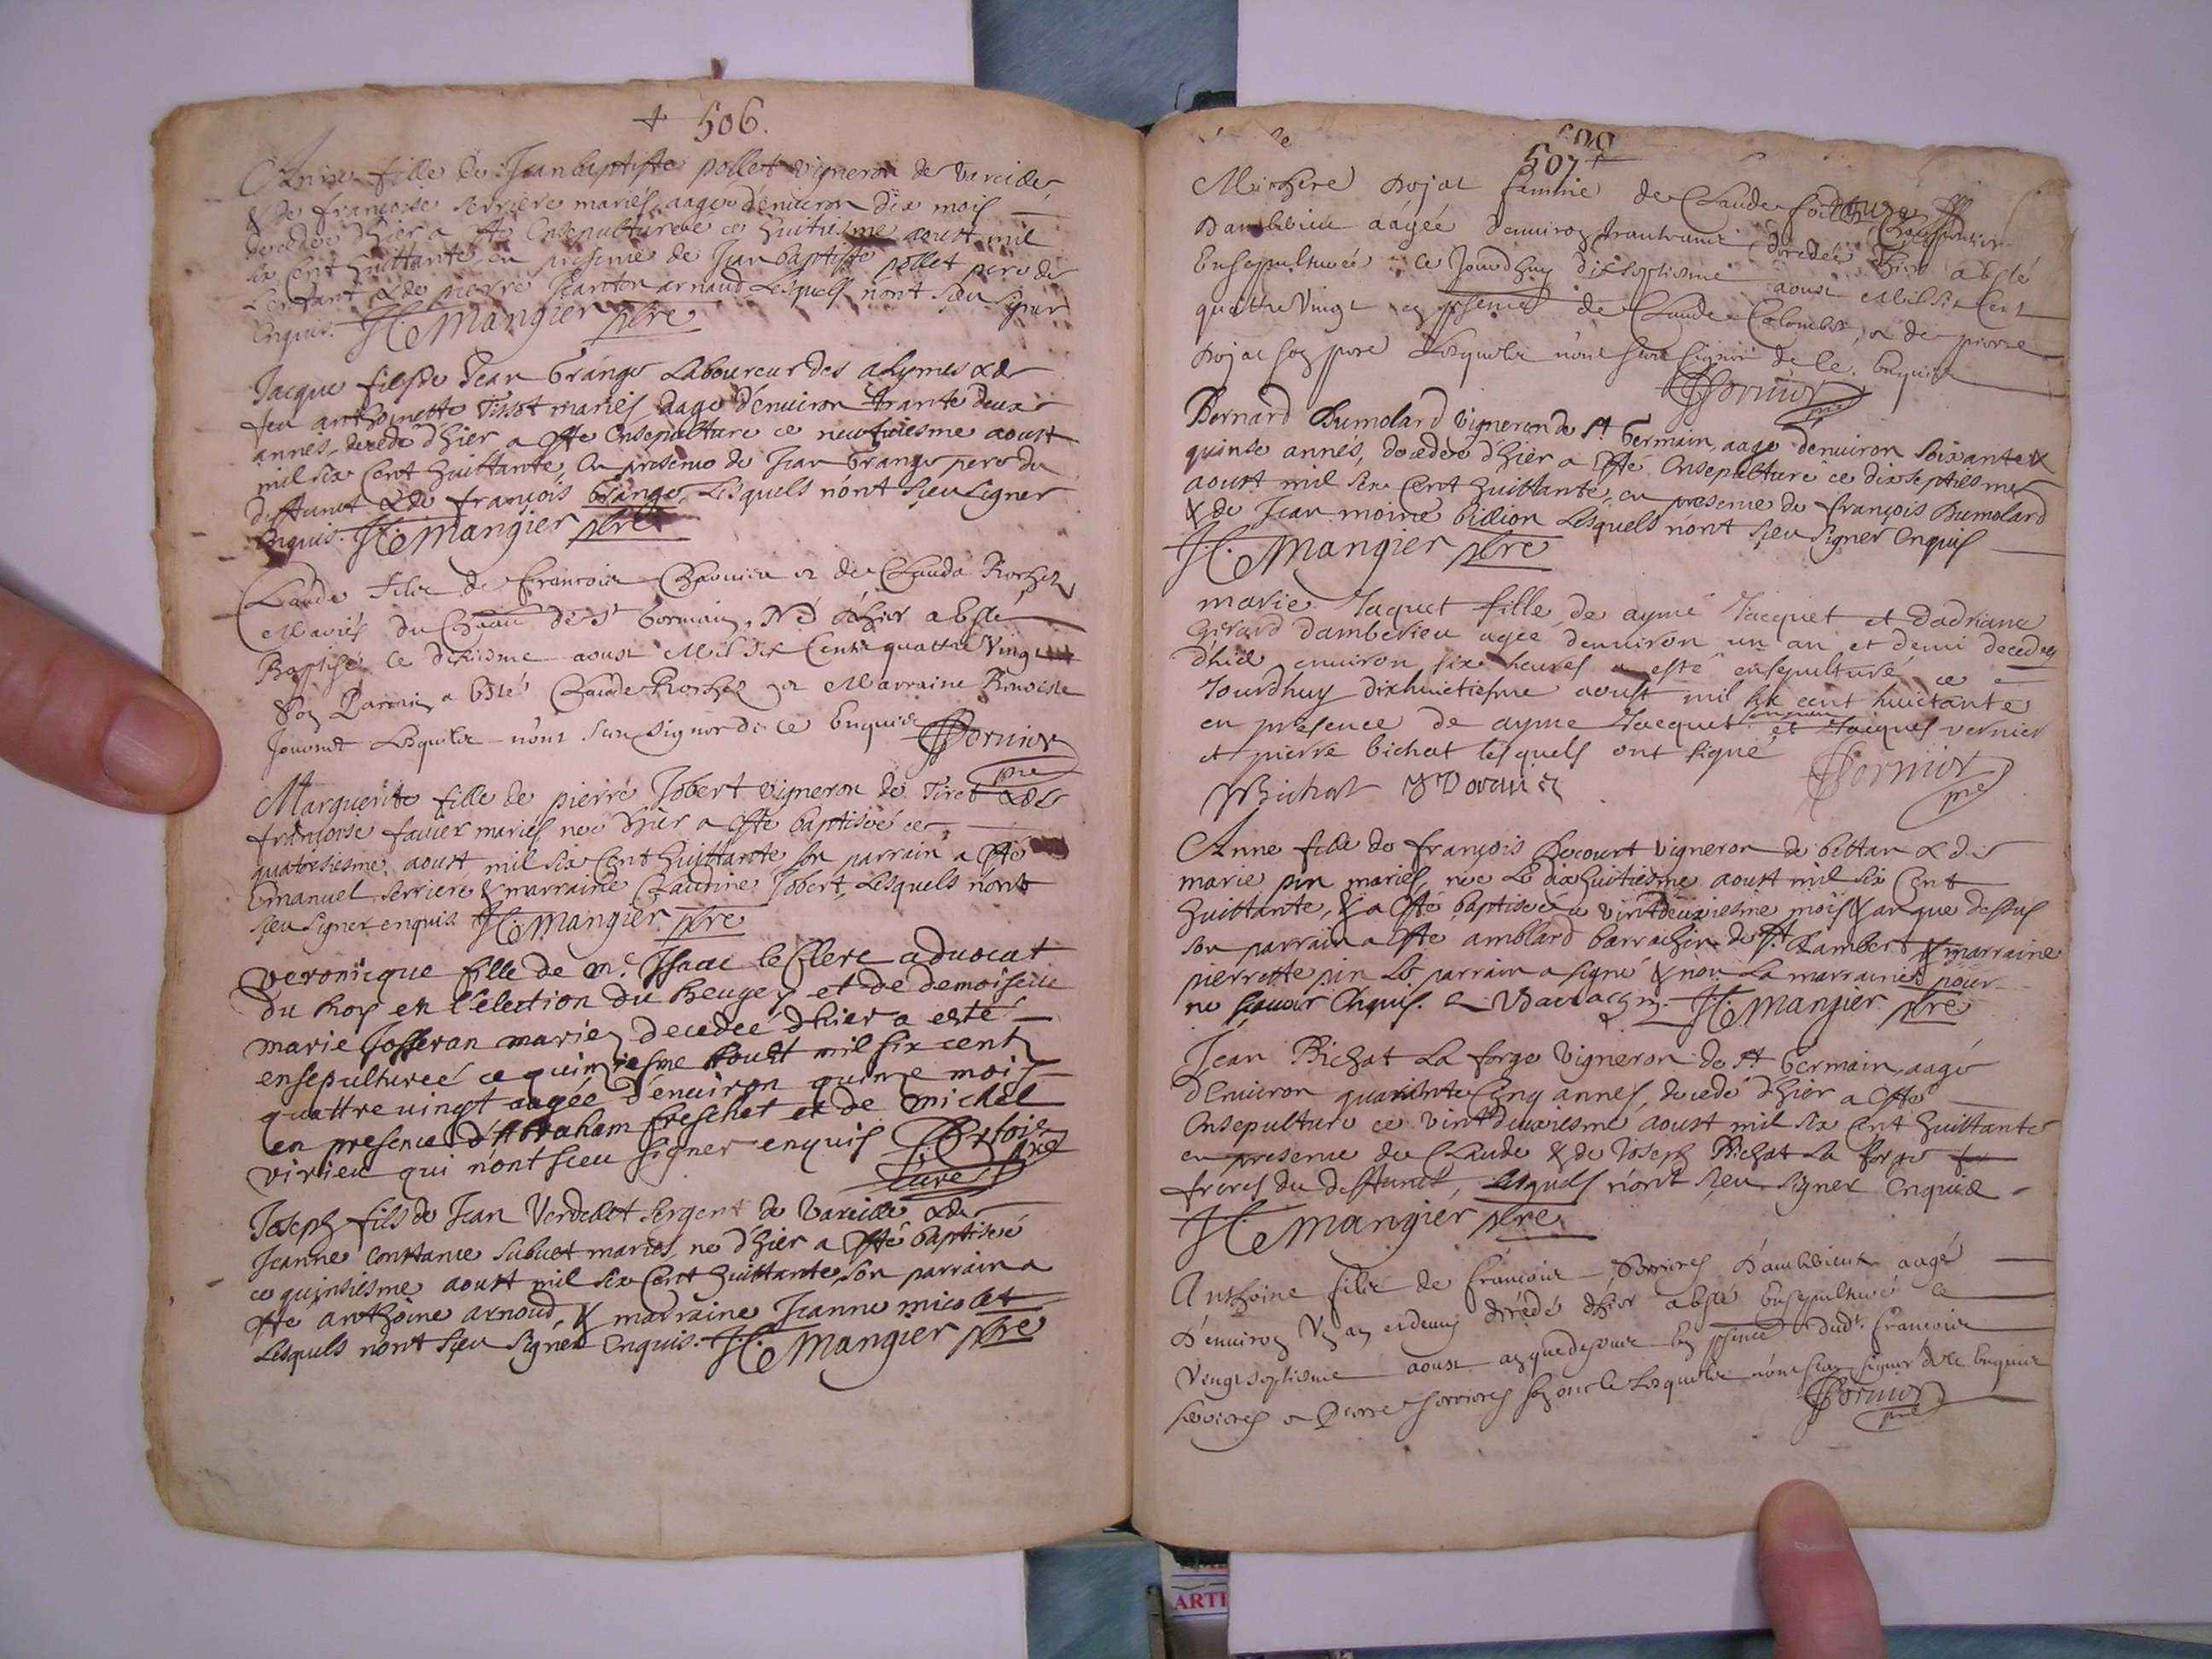 + 506.
Anne fille de Jean baptiste pollet vigneron de vareilles
& de françoise serriere mariés, aagee d'enuiron dix mois
decedee d'hier a esté ensepulturée ce huitiesme aoust mil
six cent huittante, en presence de Jean baptiste pollet pere de
L'enfant & de pierre arnaud Lesquels n'ont sçeu signer
enquis. Mangier pbre
Jacque fils de Jean Grange Laboureur des alymes & de
feu anthoinette Tissot mariés, aagé d'enuiron trante deux
annés, decedé d'hier a esté ensepulturé ce neufuiesme aoust
mil six cent huittante, en presence de Jean Grange pere du
deffunct & de françois Grange, Lesquels n'ont sçeu signer
enquis. Mangier pbre
Claude filz de francois et de Clauda Rochez
Mariés du de St Germain, Né d'hier a esté
Baptisé ce dixiesme aoust Mil six Cents quattre vingt
Son Parrain a esté Claude Rochez et Marraine
Jouvent Lesquels n'ont sceu signer de ce Enquis Fornier
pre
Marguerite fille de pierre Jobert vigneron de Tiret & de
françoise fauier mariés née d'hier a esté baptisée ce
quatorsiesme aoust mil six cent huittante son parrain a esté
Emanuel serriere & marraine Claudine Jobert, Lesquels n'ont
sçeu signer enquis. Mangier pbre
veronicque fille de me. Isaac leClerc aduocat
du Roy en l'election du beugey et de demoiselle
marie Josseran mariez decedeé d'hier a esté
ensepultureé ce quinziesme aoust mil six cent
quattre vingt aageé d'enuiron quinze mois
en presence d'Abraham Creschet et de michel
virieu qui n'ont sceu signer enquis
Curé
Joseph fils de Jean Verdellet sergent de Vareille & de
Jeanne Constance mariés, né d'hier a esté baptisé
ce quinsiesme aoust mil six Cent huittante, son parrain a
esté anthoine arnoud, & marraine Jeanne micolet
Lesquels n'ont sçeu signer enquis. Mangier pbre
507 +
Michere Dojat femme de Claude
Dambérieu aagée d'enuiron decedée d'hier a esté
Ensepulturée ce Jourd'huy dixseptiesme aoust Mil six Cent
quattre vingt en psence de Claude Colombet, et de pierre
Dojat son pere Lesquels n'ont sceu signer de ce Enquis
Fornier
pre
Bernard Dumolard vigneron de St. Germain, aagé d'enuiron soixante &
quinse annés, decedé d'hier a esté ensepulturé ce dixseptiesme
aoust mil six Cent huittante, en presence de françois Dumolard
& de Jean moine billion Lesquels n'ont sçeu signer enquis
Mangier pbre
marie Jaquet fille de aymé Jacquet et dadriane
Girard damberieu agee denuiron un an et demi decedee
d'hier enuiron six heures a esté ensepulturé ce
Jourdhuy dixhuictiesme aoust mil six cent huictante
en presence de ayme Jacquet et Jacques vernier
et pierre bichat lesquels ont signé Fornier
PBichat JVernier pre
Anne fille de françois Decourt vigneron de bettan & de
marie pin mariés, née le dixhuitiesme aoust mil six Cent
huittante, & a esté baptisée le vintdeuxiesme mois & an que dessus
son parrain a esté amblard barrachin de St. Rambert & marraine
pierrette pin Le parrain a signé & non La marraine pour
ne sçauoir enquis. Mangier pbre
Jean Bichat La forge vigneron de St Germain, aagé
d'enuiron quarante Cinq annés, decedé d'hier a esté
ensepulturé ce vintdeuxiesme aoust mil six Cent huittante
en presence de Claude & de Joseph Bichat La forge
freres du deffunct, Lesquels n'ont sçeu signer enquis
Mangier pbre
Anthoine filz de francois Serrieres d'ambérieu aagé
D'enuiron Un an et demy decedé d'hier a esté Ensepulturé ce
Vingtseptiesme aoust an que dessus en psence dudt. francois
Serrieres et Pierre Serrieres son oncle Lesquels n'ont sceu signer de ce Enquis
Fornier
pre
ARTI